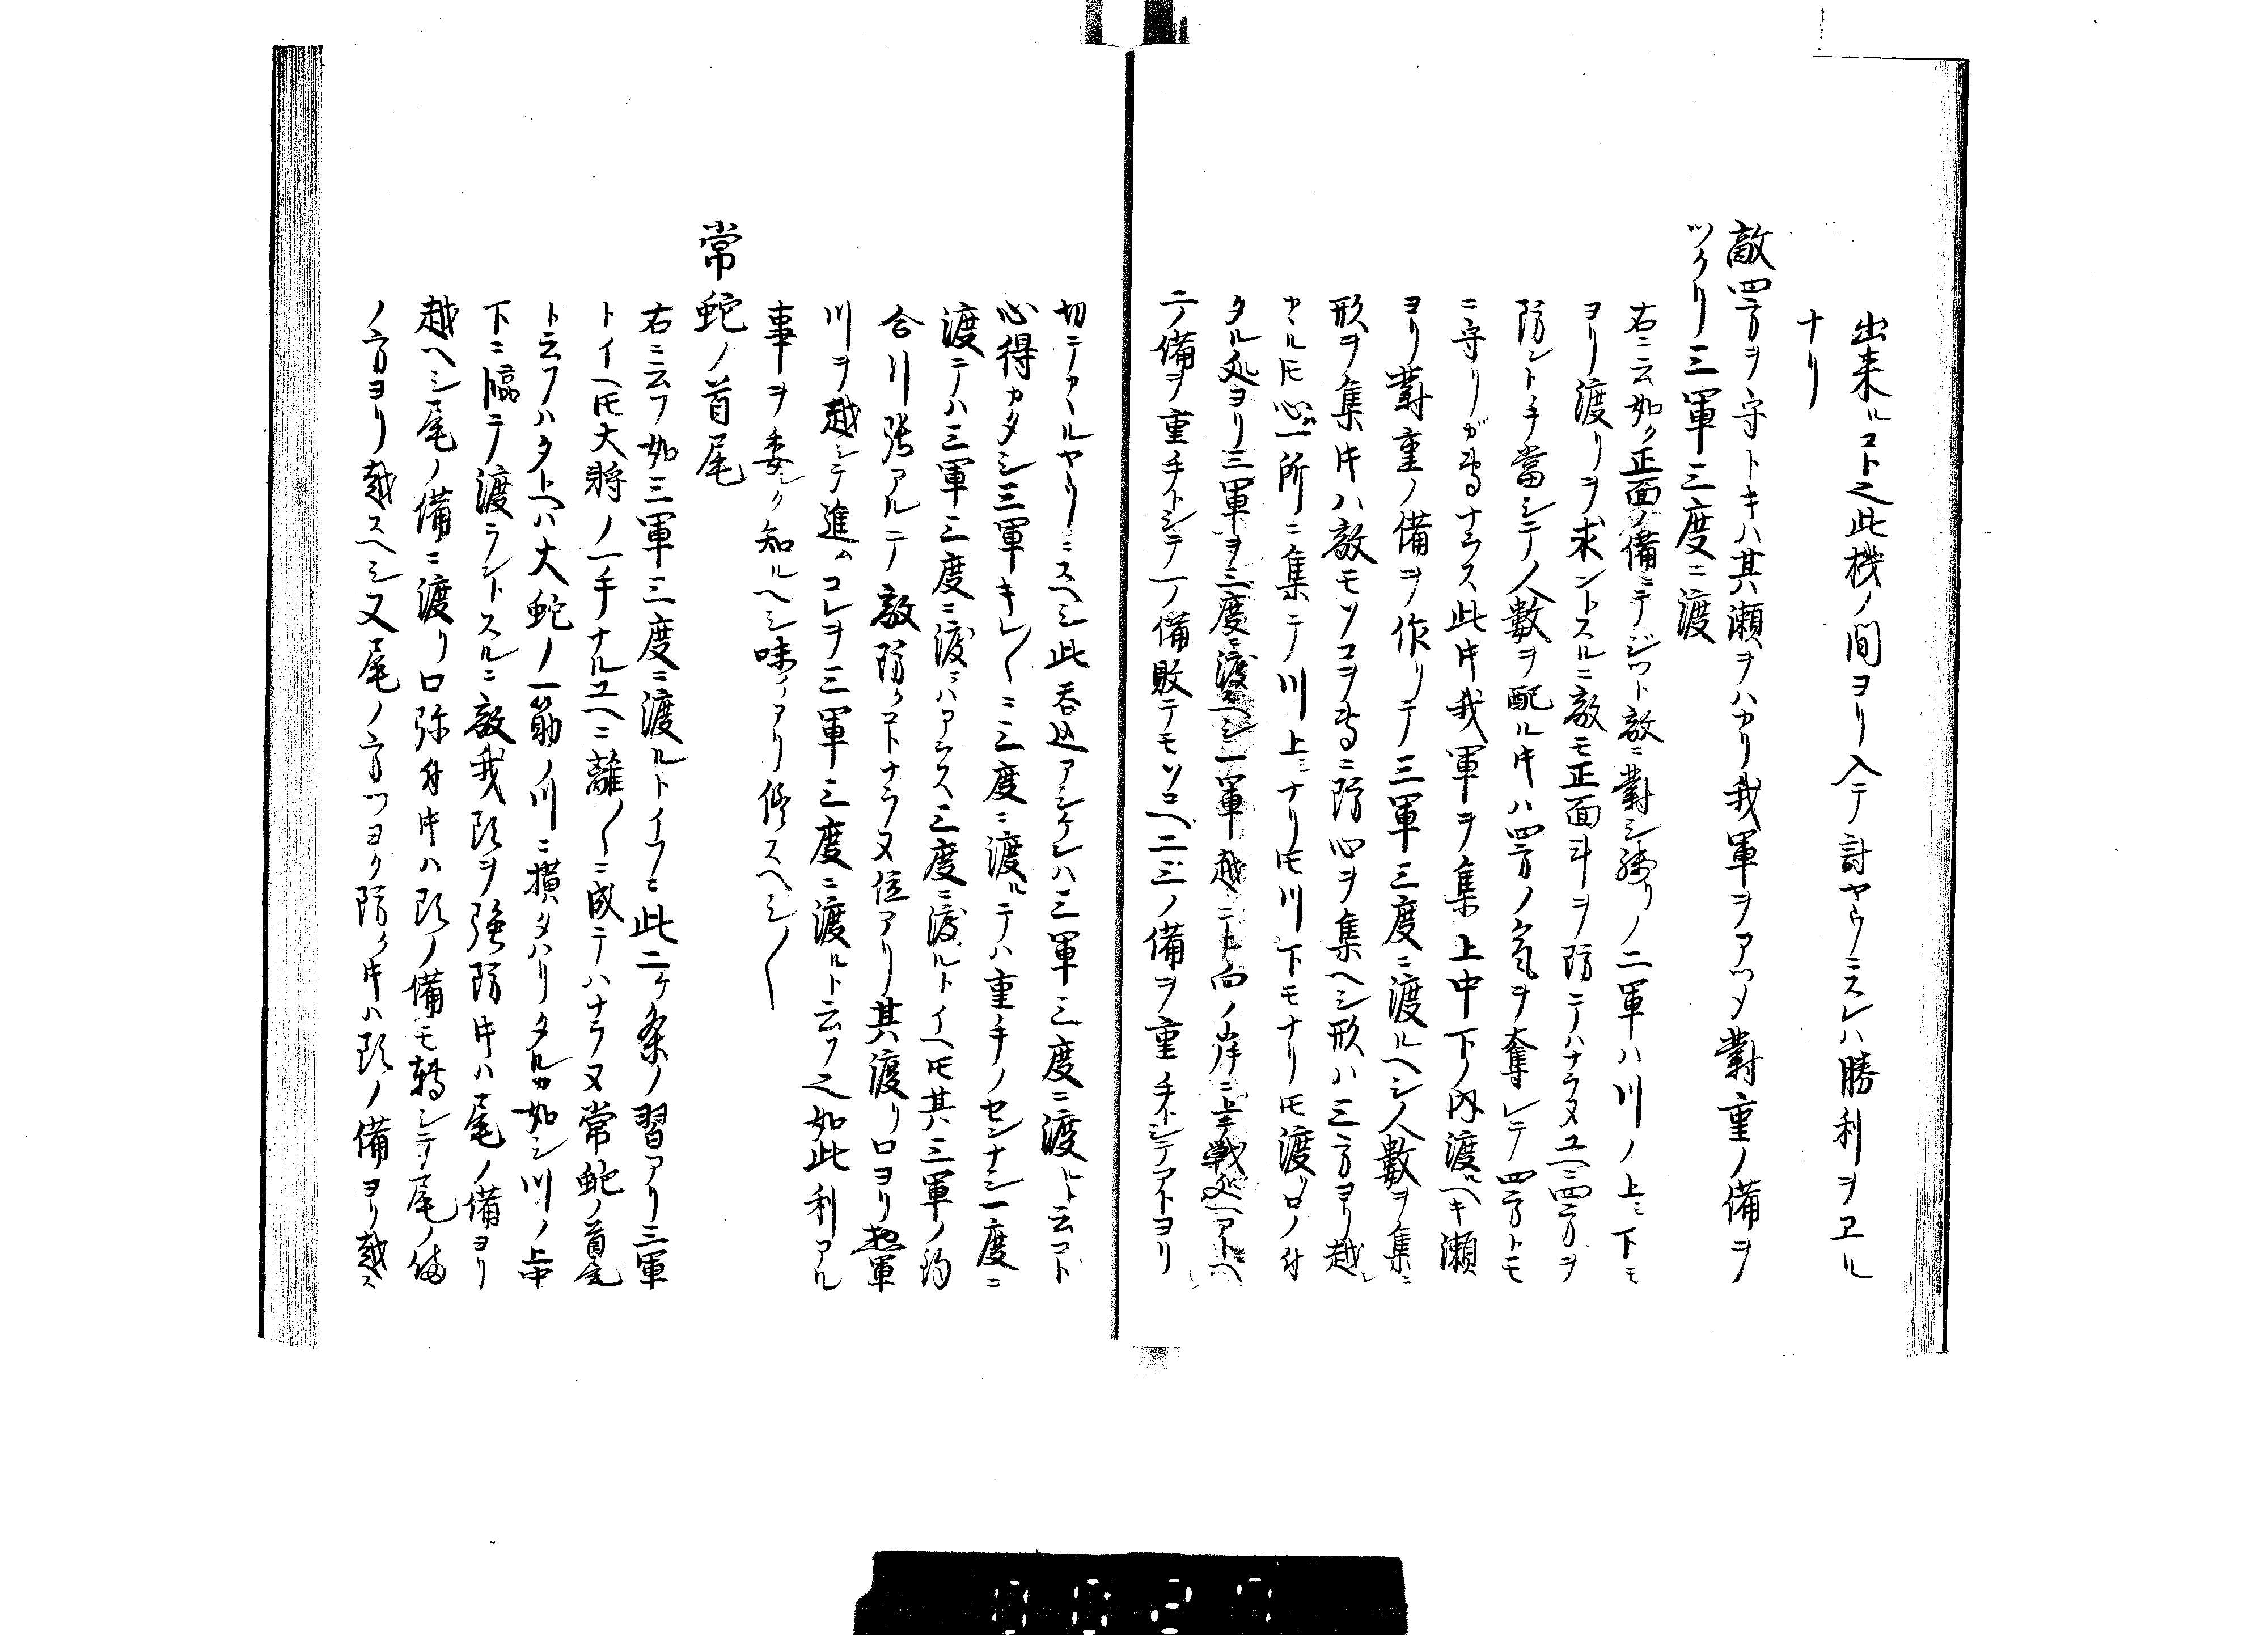 出来ルコト之此機ノ間ヨリ入テ討ヤウニスレハ勝利ヲヱル
ナリ
敵四方ヲ守トキハ其瀬ヲハカリ我軍ヲアツメ對重ノ備ヲ
ツクリ三軍三度ニ渡
右ニ云如ク正面ノ備ニテジツト敵ニ對シ残リノ二軍ハ川ノ上ミ下モ
ヨリ渡リヲ求ントスルニ敵モ正面斗ヲ防テハナラヌユヘニ四方ヲ
防ント手當シテノ人数ヲ配ル片ハ四方ノ氣ヲ奪レテ四方トモ
ニ守リガ専ナラス此片我軍ヲ集上中下ノ内渡ルヘキ瀬
ヨリ對重ノ備ヲ作リテ三軍三度ニ渡ルヘシ人数ヲ集ニ
形ヲ集片ハ敵モソコヲ専ニ防心ヲ集ヘシ形ハ三方ヨリ越シ
カルヒ心ハ一所ニ集テ川上ミナリ圧川下モナリ圧渡リ口ノ付
タル処ヨリ三軍ヲ三度ニ渡スヘシ一軍越ニト向ノ岸ニ上テ戦処ヘアトヘ
二ノ備ヲ重手トシテ一ノ備敗テモソコヘ二三ノ備ヲ重手トシテアトヨリ
切テカヽルヤウニスヘシ此呑込アシケレハ三軍三度ニ渡ルト云コト
心得カタシ三軍キレ〱ニ三度ニ渡ルテハ重手ノセンナシ一度ニ
渡テハ三軍三度ニ渡ニハアラス三度ニ渡ルトイヘ圧其三軍ノ約
合川張アルニテ敵防クコトナラヌ位アリ其渡リ口ヨリ惣軍
川ヲ越シテ進ムコレヲ三軍三度ニ渡ルト云フ之如此利アル
事ヲ委シク知ルヘシ味イアリ修スヘシ〱
常蛇ノ首尾
右ニ云フ如三軍三度ニ渡ルトイフニ此二ケ条ノ習アリ三軍
トイヘ圧大将ノ一手ナルユヘニ離〱ニ成テハナラヌ常蛇ノ首尾
ト云フハタトヘハ大蛇ノ一筋ノ川ニ横タハリタルカ如シ川ノ上中
下ニ臨テ渡ラントスルニ敵我頭ヲ強防片ハ尾ノ備ヨリ
越ヘシ尾ノ備ニ渡リ口弥付片ハ頭ノ備モ轉シテ尾ノ備
ノ方ヨリ越スヘシ又尾ノ方ツヨク防ク片ハ頭ノ備ヨリ越ス